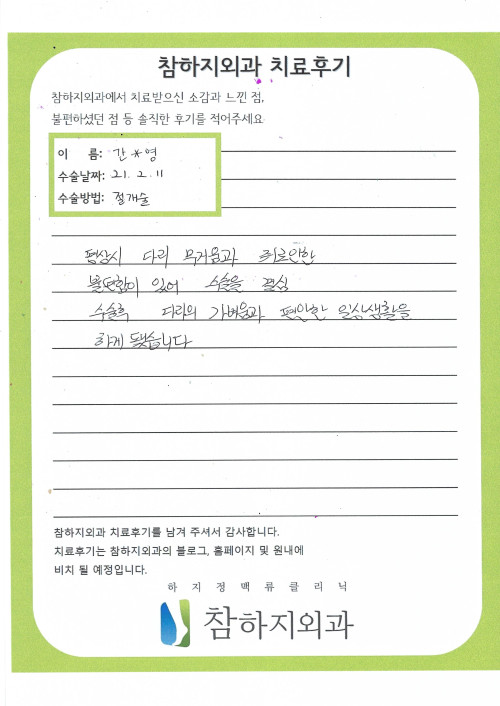 참하지외과 치료후기
참하지외과에서 치료받으신 소감과 느낀 점,
불편하셨던 점 등 솔직한 후기를 적어주세요
이 름: 간*영
수술날짜: 21. 2. 11
수술방법: 절개술
평상시 다리 무거움과 피로인한
불편함이 있어 수술을 결심
수술후 다리의 가벼움과 편안한 일상생활을
하게 됐습니다
참하지외과 치료후기를 남겨 주셔서 감사합니다.
치료후기는 참하지외과의 블로그, 홈페이지 및 원내에
비치 될 예정입니다.
하지정맥류클리닉
참하지외과